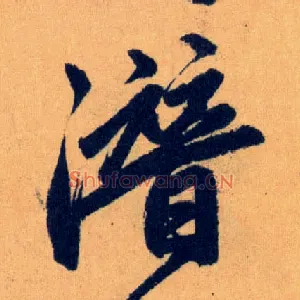 潜
Shufawang.CN